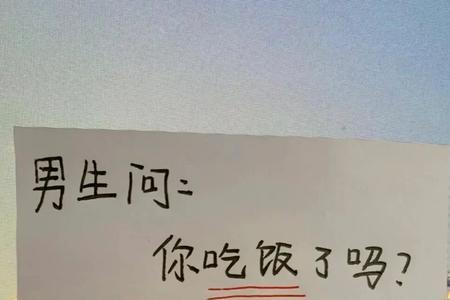 男生问:
你吃饭了吗?